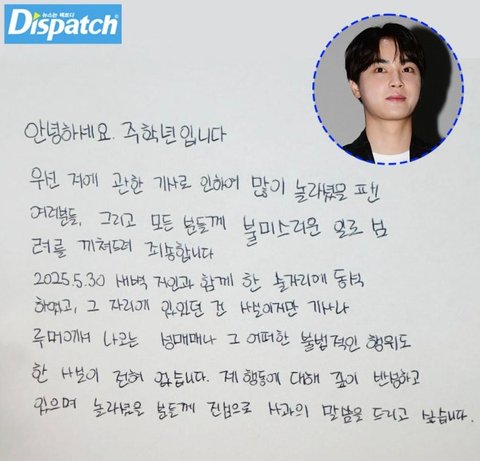 뉴스는 팩트다
Dispatch
안녕하세요. 주학년입니다
우선 저에 관한 기사로 인하여 많이 놀라셨을 팬
여러분들, 그리고 모든 분들께 불미스러운 일로 심
려를 끼쳐드려 죄송합니다
2025.5.30 새벽 지인과 함께 한 술자리에 동석
하였고, 그 자리에 있었던 건 사실이지만 기사나
루머에서 나오는 성매매나 그 어떠한 불법적인 행위도
한 사실이 전혀 없습니다. 제 행동에 대해 깊이 반성하고
있으며 놀라셨을 분들께 진심으로 사과의 말씀을 드리고 싶습니다.